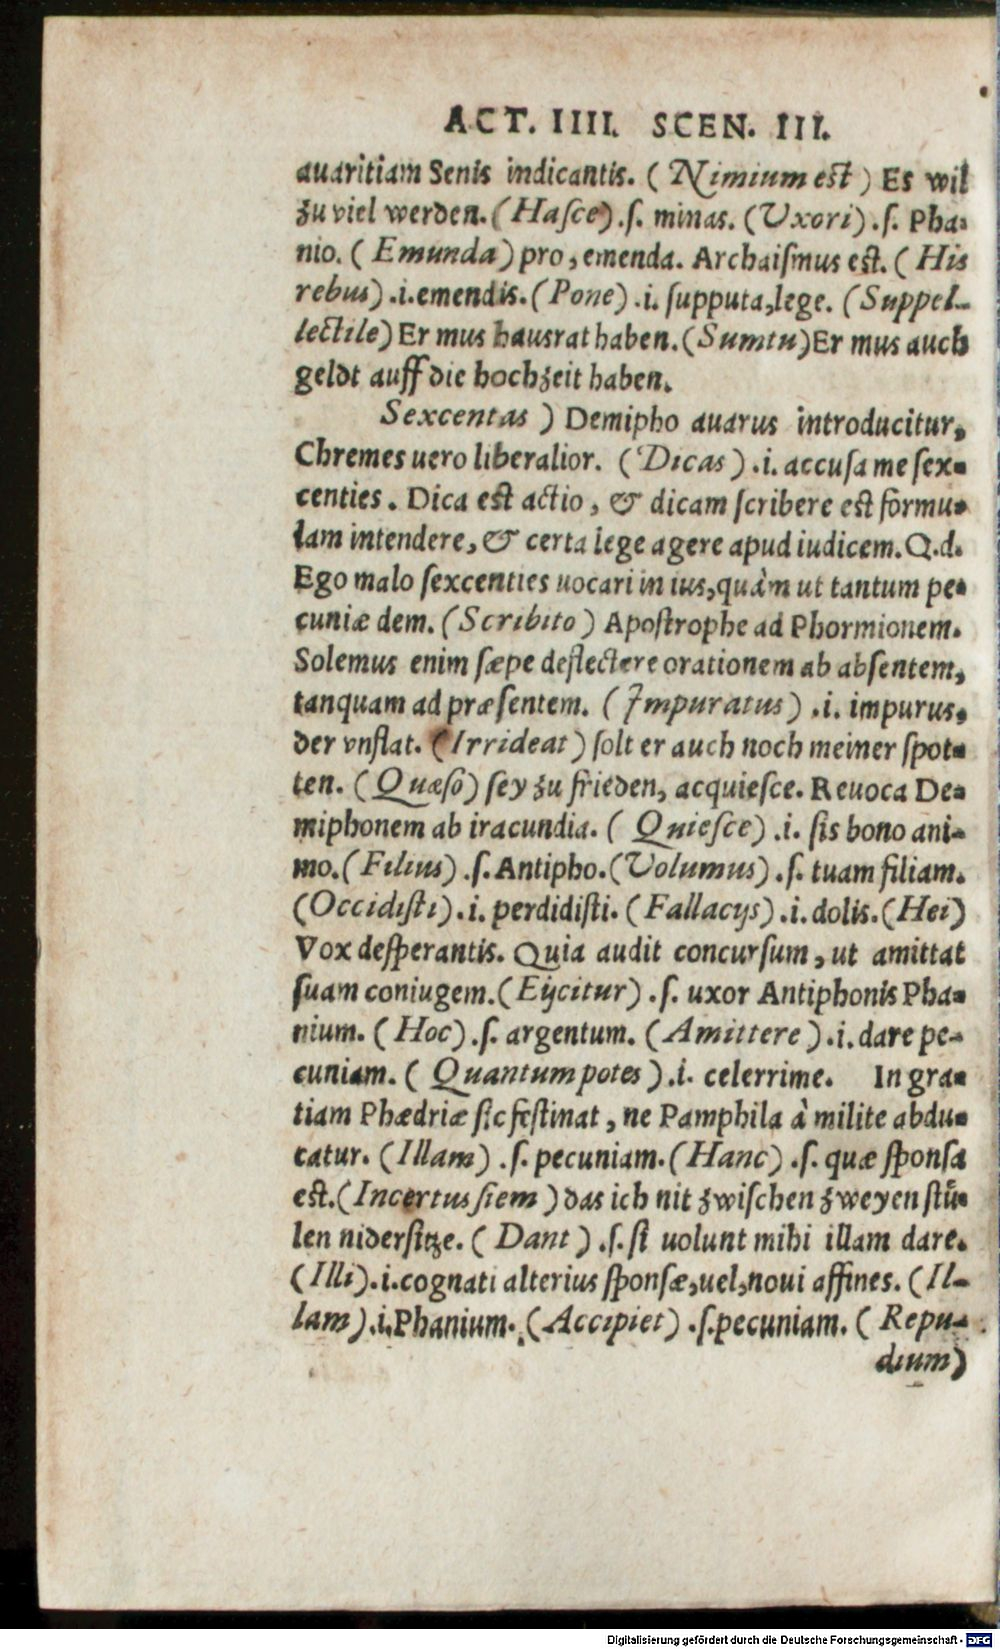 ACT. IIII. SCEN. III.
auaritiam Senis indicantis. (Nimium est) Es wil
zu viel werden. (Hasce) .ſ. minas. (Vxori) .ſ. Pha-
nio. (Emunda) pro, emenda. Archaiſmus est. (His
rebus) .i. emendis. (Pone) .i. ſupputa, lege. (Suppel-
lectile) Er mus hausrat haben. (Sumtu) Er mus auch
geldt auff die hochzeit haben.
Sexcentas) Demipho auarus introducitur,
Chremes uero liberalior. (Dicas) .i. accuſa me ſex-
centies. Dica est actio, & dicam ſcribere est formu-
lam intendere, & certa lege agere apud iudicem. Q.d.
Ego malo ſexcenties uocari in ius, quàm ut tantum pe-
cuniæ dem. (Scribito) Apoſtrophe ad Phormionem.
Solemus enim ſæpe deflectere orationem ab abſentem,
tanquam ad præſentem. (Impuratus) .i. impurus,
der vnflat. (Irrideat) ſolt er auch noch meiner ſpot-
ten. (Quæſo) ſey zu frieden, acquieſce. Reuoca De-
miphonem ab iracundia. (Quieſce) .i. ſis bono ani-
mo. (Filius) .ſ. Antipho. (Volumus) .ſ. tuam filiam.
(Occidiſti) .i. perdidiſti. (Fallacijs) .i. dolis. (Hei)
Vox deſperantis. Quia audit concurſum, ut amittat
ſuam coniugem. (Eijcitur) .ſ. uxor Antiphonis Pha-
nium. (Hoc) .ſ. argentum. (Amittere) .i. dare pe-
cuniam. (Quantum potes) .i. celerrime. In gra-
tiam Phædriæ ſic feſtinat, ne Pamphila à milite abdu-
catur. (Illam) .ſ. pecuniam. (Hanc) .ſ. quæ ſponſa
est. (Incertus ſiem) das ich nit zwiſchen zweyen ſtü-
len niderſitze. (Dant) .ſ. ſi uolunt mihi illam dare.
(Illi) .i. cognati alterius ſponſæ, uel, noui affines. (Il-
lam) .i. Phanium. (Accipiet) .ſ. pecuniam. (Repu-
dium)
Digitalisierung gefördert durch die Deutsche Forschungsgemeinschaft - DFG